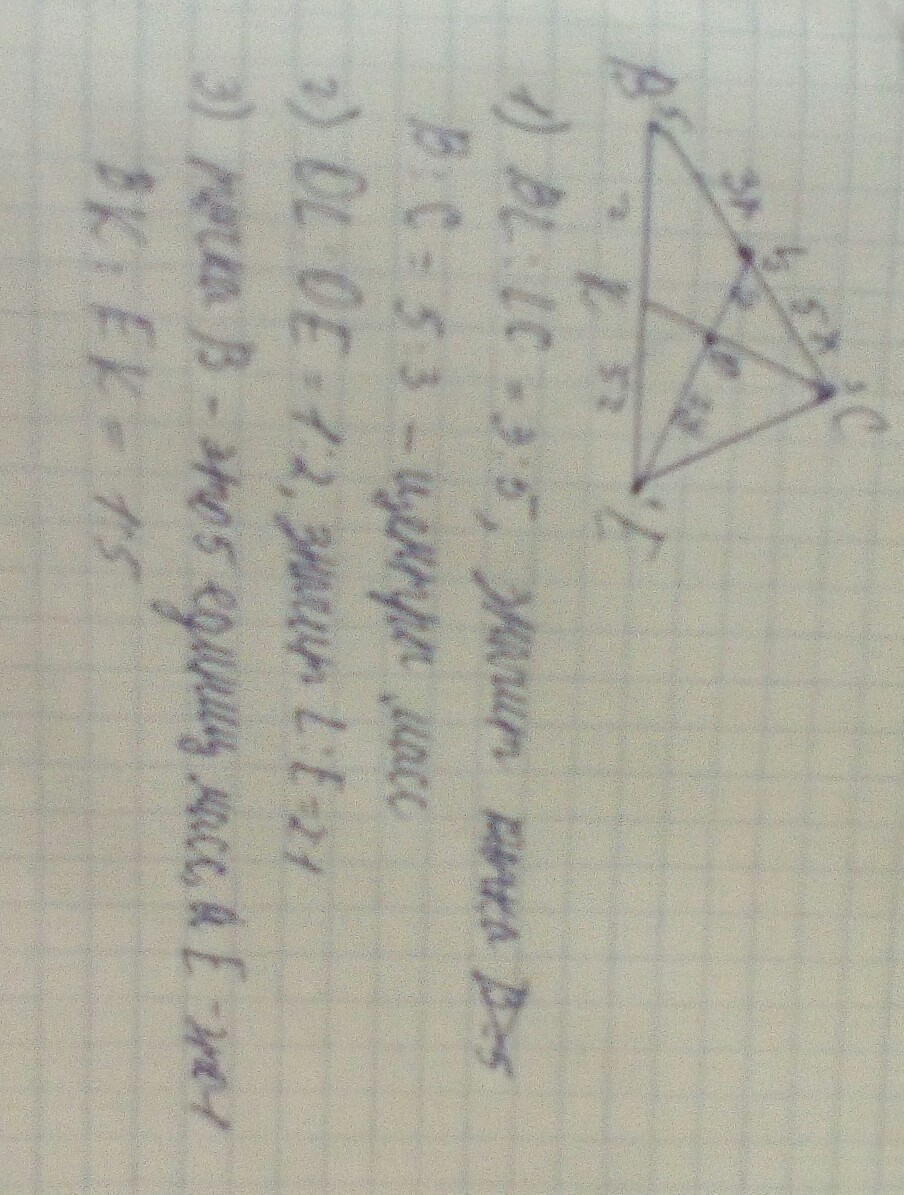 B
C
K
1) BL:LC = 3:5, значит точка B-5
B:C = 5:3 - центр масс
2) OL:OE = 1:2, значит L:E=2:1
3) точка B - это 5 единиц масс, а E - это 1
BK:EK = 1:5